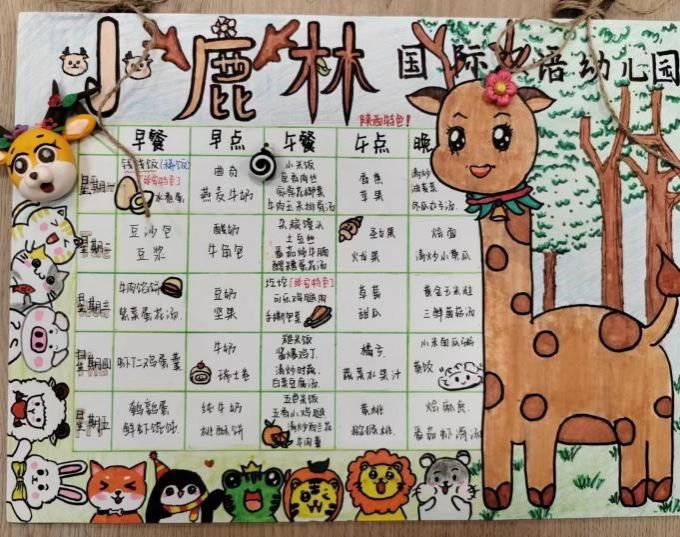 小鹿林
国际双语幼儿园
陕西特色!
早餐 早点 午餐 午点 晚
星期一
钱钱饭(稀饭)
[陕西特色]
水煮蛋
曲奇
燕麦牛奶
小米饭
香蕉
苹果
清炒
油麦菜
冬瓜丸子汤
星期二
豆沙包
豆浆
酸奶
牛角包
杂粮馒头
土豆丝
番茄炖牛腩
醪糟蛋花汤
圣女果
火龙果
烩面
清炒小黄瓜
牛肉馅饼
紫菜蛋花汤
豆奶
坚果
[陕西特色]
可乐鸡腿肉
手撕包菜
草莓
甜瓜
黄金玉米粒
三鲜菌菇汤
星期四
虾仁鸡蛋羹
牛奶
瑞士卷
酱爆鸡丁
清炒时蔬
白菜豆腐汤
橘子
蔬菜水果汁
小米南瓜粥
蒸饺
星期五
鹌鹑蛋
鲜虾馄饨
纯牛奶
桃酥饼
五色米饭
五香小鸡腿
清炒西兰花
牛肉羹
黄桃
猕猴桃
烩麻食
番茄虾滑汤